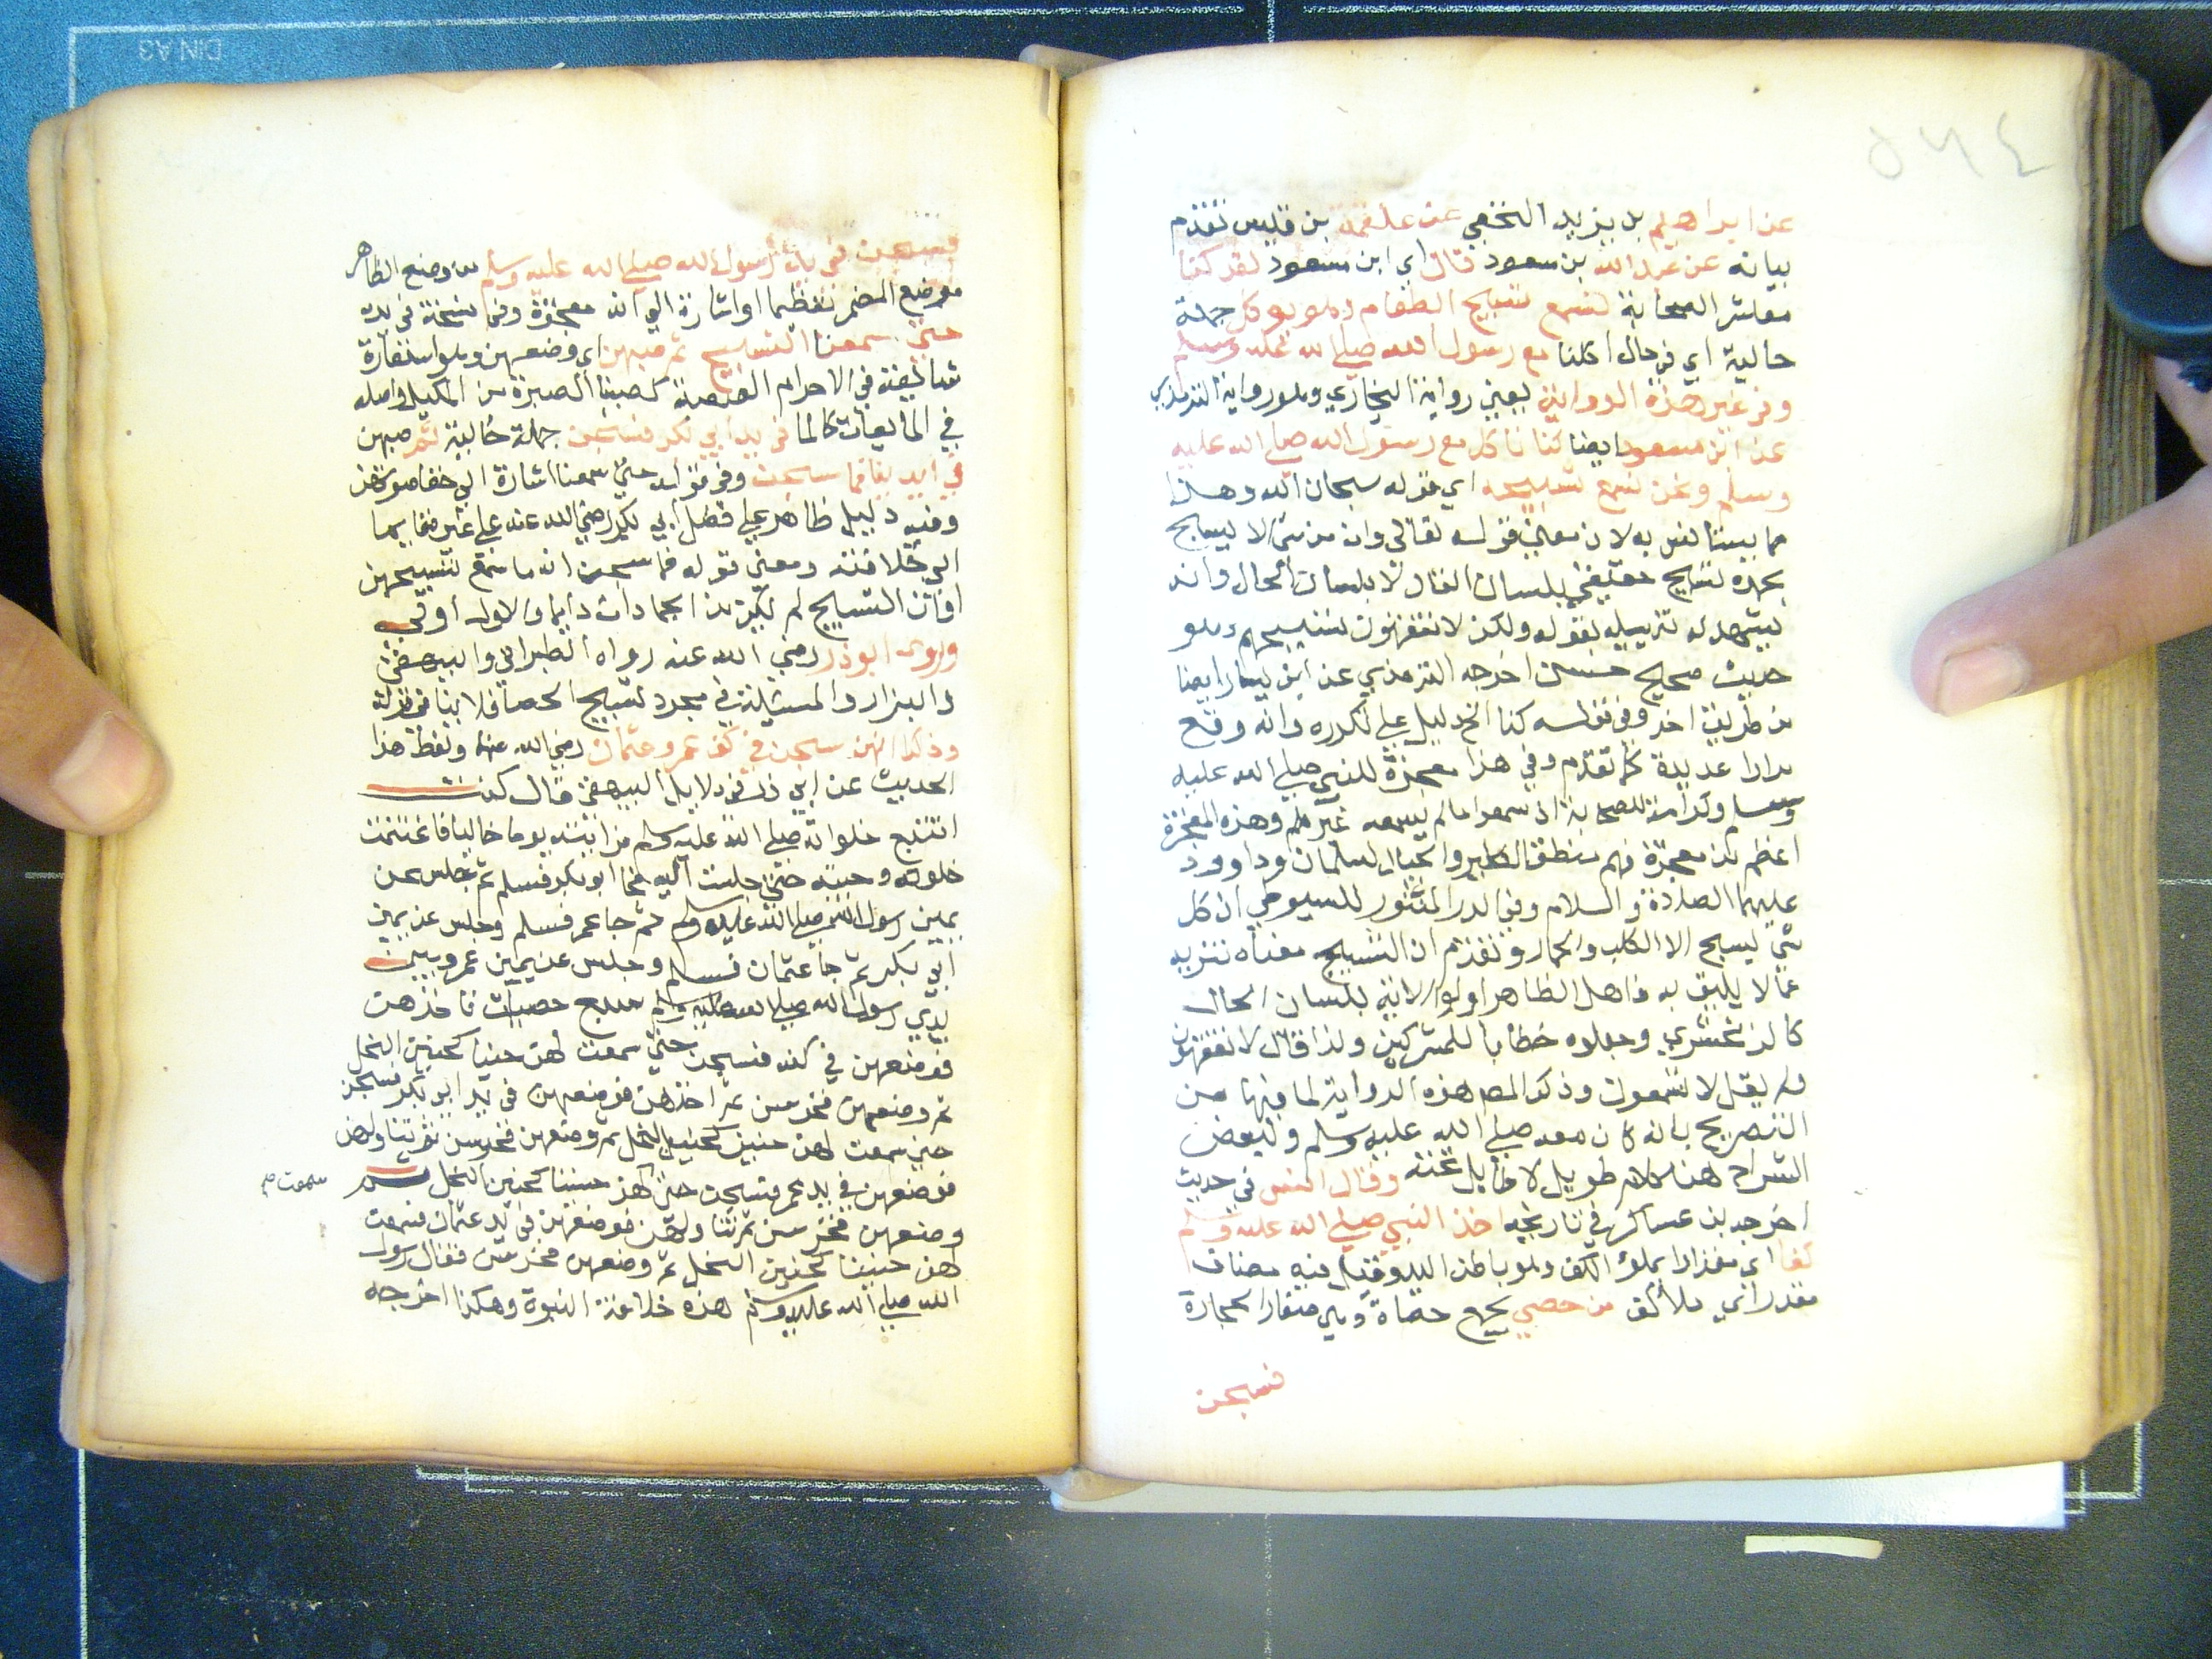 عن ابراهيم بن يزيد النخعي عن علقمة بن قيس تقدم
بيانه عن عبد الله بن مسعود قال اي ابن مسعود لقد كنا
معاشر الصحابة نسمع تسبيح الطعام وهو يوكل جملة
حالية اي في حال اكلنا مع رسول الله صلي الله عليه وسلم
وفي غير هذه الرواية يعني رواية البخاري وهو رواية الترمذي
عن ابن مسعود ايضا كنا ناكل مع رسول الله صلي الله عليه
وسلم ونحن نسمع تسبيحه اي قوله سبحان الله وهذا
مما يستانس به لان معني قوله تعالي وان من شي الا يسبح
بحمده تسبيح حقيقي بلسان القال لا بلسان الحال وانه
يشهد له تنزيله بقوله ولكن لا تفقهون تسبيحهم وهو
حديث صحيح حسن اخرجه الترمذي عن ابن بشار ايضا
من طريق اخر وفي قوله كنا الخ دليل علي تكرره وانه وقع
مرارا عديدة كما تقدم وفي هذا معجزة للنبي صلي الله عليه
وسلم وكرامة للصحابة اذ سمعوا ما لم يسمعه غيرهم وهذه المعجزة
اعظم من معجزة فهم منطق الطير والجبال لسليمان وداوود
عليهما الصلاة والسلام وفي الدر المنثور للسيوطي ان كل
شي يسبح الا الكلب والحمار وتقدم ان التسبيح معناه تنزيه
عما لا يليق به فاهل الظاهر اولوا الاية بلسان الحال
كالزمخشري وجعلوه خطابا للمشركين ولذا قال لا تفقهون
ولم يقل لا تسمعون وذكر المص هذه الرواية لما فيها من
التصريح بانه كان معه صلي الله عليه وسلم ولبعض
الشراح هنا كلام طويل لا طايل تحته وقال انس في حديث
اخرجه بن عساكر في تاريخه اخذ النبي صلي الله عليه وسلم
كفا اي مقدارا يملؤ الكف وهو باطن اليد وقيل فيه مضاف
مقدر اي ملأ كف من حصي جمع حصاة وهي صغار الحجارة
فسبحن
فسبحن في يد رسول الله صلي الله عليه وسلم من وضع الظاهر
موضع المضمر تعظيما او اشارة الي انه معجزة وفي نسخة في يده
حتي سمعنا التسبيح ثم صبهن اي وضعهن وهو استعارة
شايعة في الاجرام المنفصلة كصب الصبرة من المكيل واصله
في المايعات كالما في يد ابي بكر فسبحن جملة حالية ثم صبهن
في ايدينا فما سبحن وفي قوله حتي سمعنا اشارة الي خفا صوتهن
وفيه دليل ظاهر علي فضل ابي بكر رضي الله عنه علي غيره وفيه ايما
الي خلافته ومعني قوله فما سبحن انه ما سمع تسبيحهن
او ان التسبيح لم يكن من الجمادات دايما والاول اوفي
وروي ابو ذر رضي الله عنه رواه الطبراني والبيهقي
والبزار والمثلية في مجرد تسبيح الحصا فلا ينافي قوله
وذكر انهن سبحن في كف عمر وعثمان رضي الله عنهما ولفظ هذا
الحديث عن ابي ذر في دلايل البيهقي قال كنت
اتتبع خلواته صلي الله عليه وسلم فرايته يوما خاليا فاغتنمت
خلوته وجيته حتي جلست اليه فجا ابو بكر فسلم ثم جلس عن
يمين رسول الله صلي الله عليه وسلم ثم جا عمر فسلم وجلس عن يمين
ابي بكر ثم جا عثمان فسلم وجلس عن يمين عمر وبين
يدي رسول الله صلي الله عليه وسلم سبع حصيات فاخذهن
فوضعهن في كفه فسبحن حتي سمعت لهن حنينا كحنين النحل
ثم وضعهن فخرسن ثم اخذهن فوضعهن في يد ابي بكر فسبحن
حتي سمعت لهن حنين كحنين النحل ثم وضعهن فخرسن ثم تناولهن
فوضعهن في يد عمر فسبحن حتي لهن حنينا كحنين النحل ثم
سمعت صح
وضعهن فخرسن ثم تناولهن فوضعهن في يد عثمان فسمعت
لهن حنينا كحنين النحل ثم وضعهن فخرسن فقال رسول
الله صلي الله عليه وسلم هذه خلافة النبوة وهكذا اخرجه